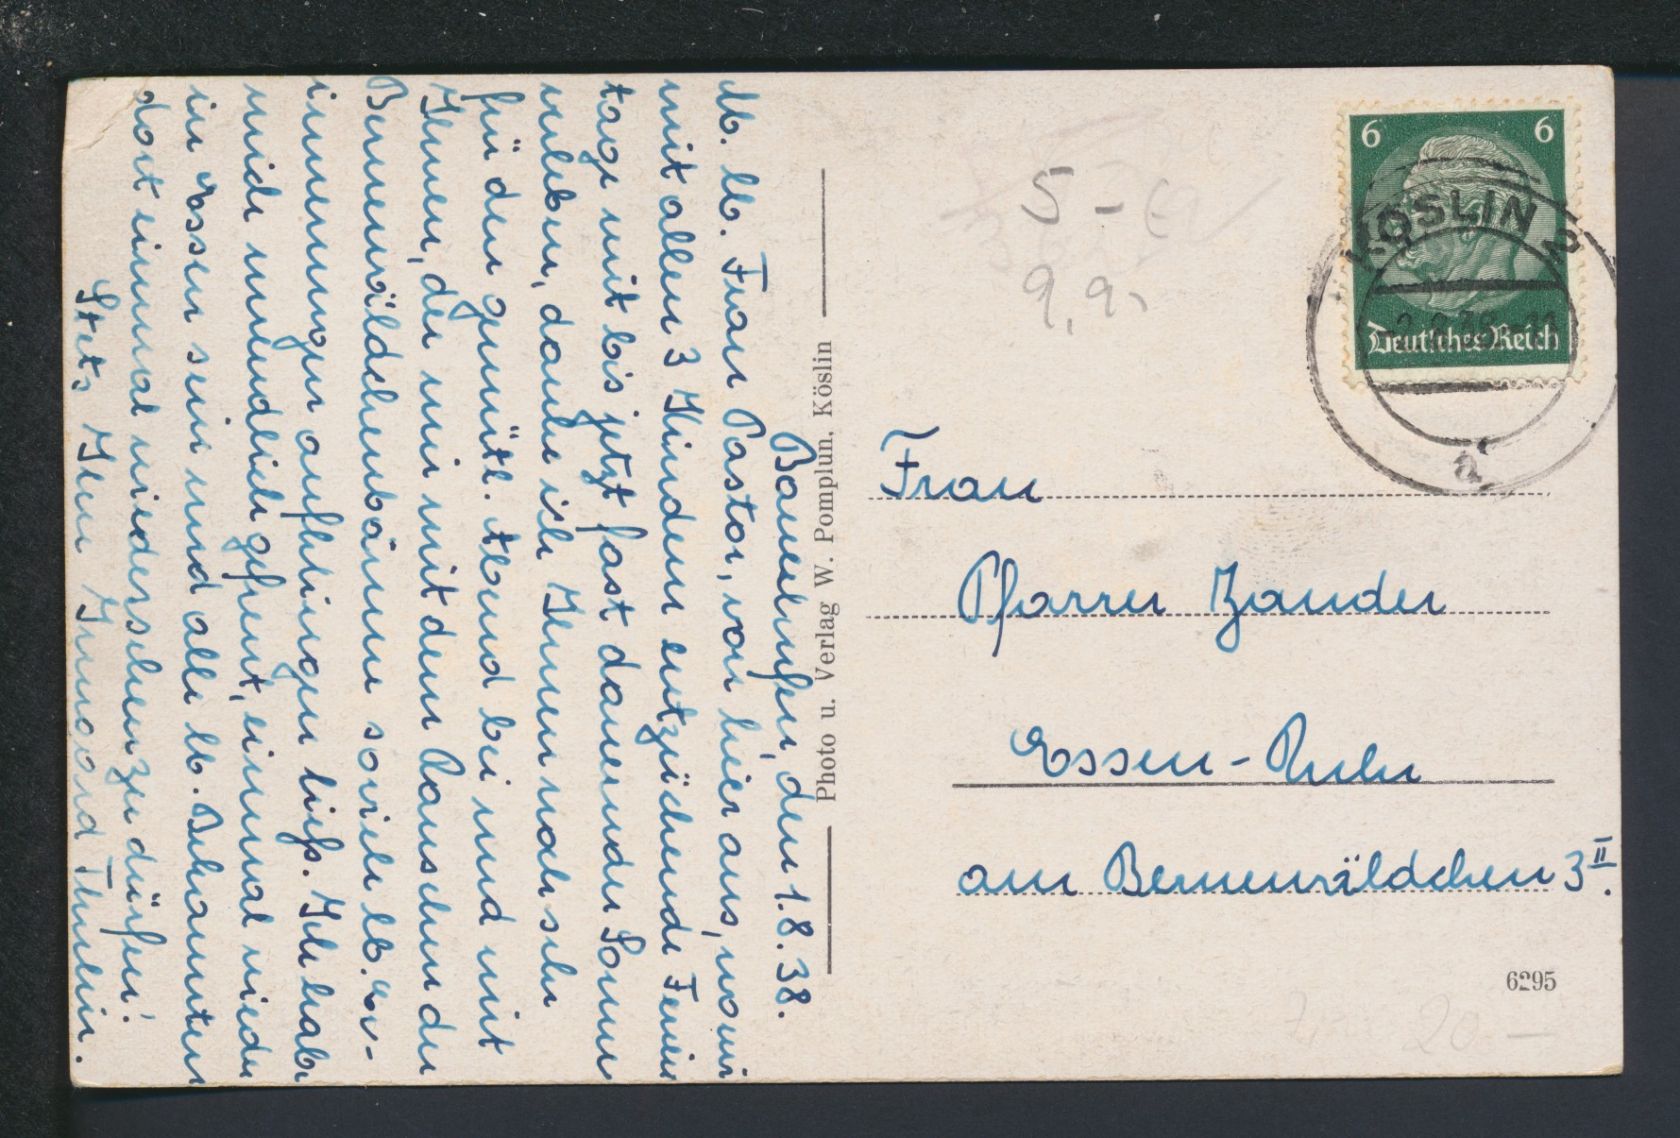 Bauernhufen, den 1.8.38.
lb. lb. Frau Pastor, von hier aus, wo wir
mit allen 3 Kindern entzückende Ferien
tage mit bis jetzt fast dauernder Sonne
erleben, danke ich Ihnen noch sehr
für den gemütl. Abend bei und mit
Ihnen, der mir mit dem Rauschen der
Bernewäldchenbäume soviele lb. Er-
innerungen aufklingen ließ. Ich habe
mich unendlich gefreut, einmal wieder
in Essen sein und alle lb. Bekannten
dort einmal wiedersehen zu dürfen!
Stets Ihre Irmgard
Photo u. Verlag W. Pomplun, Köslin
5 -
9,9-
6 6
Deutsches Reich
KÖSLIN 2
a
Frau
Pfarrer Zander
Essen-Ruhr
am Bernewäldchen 3 II.
6295
20 —